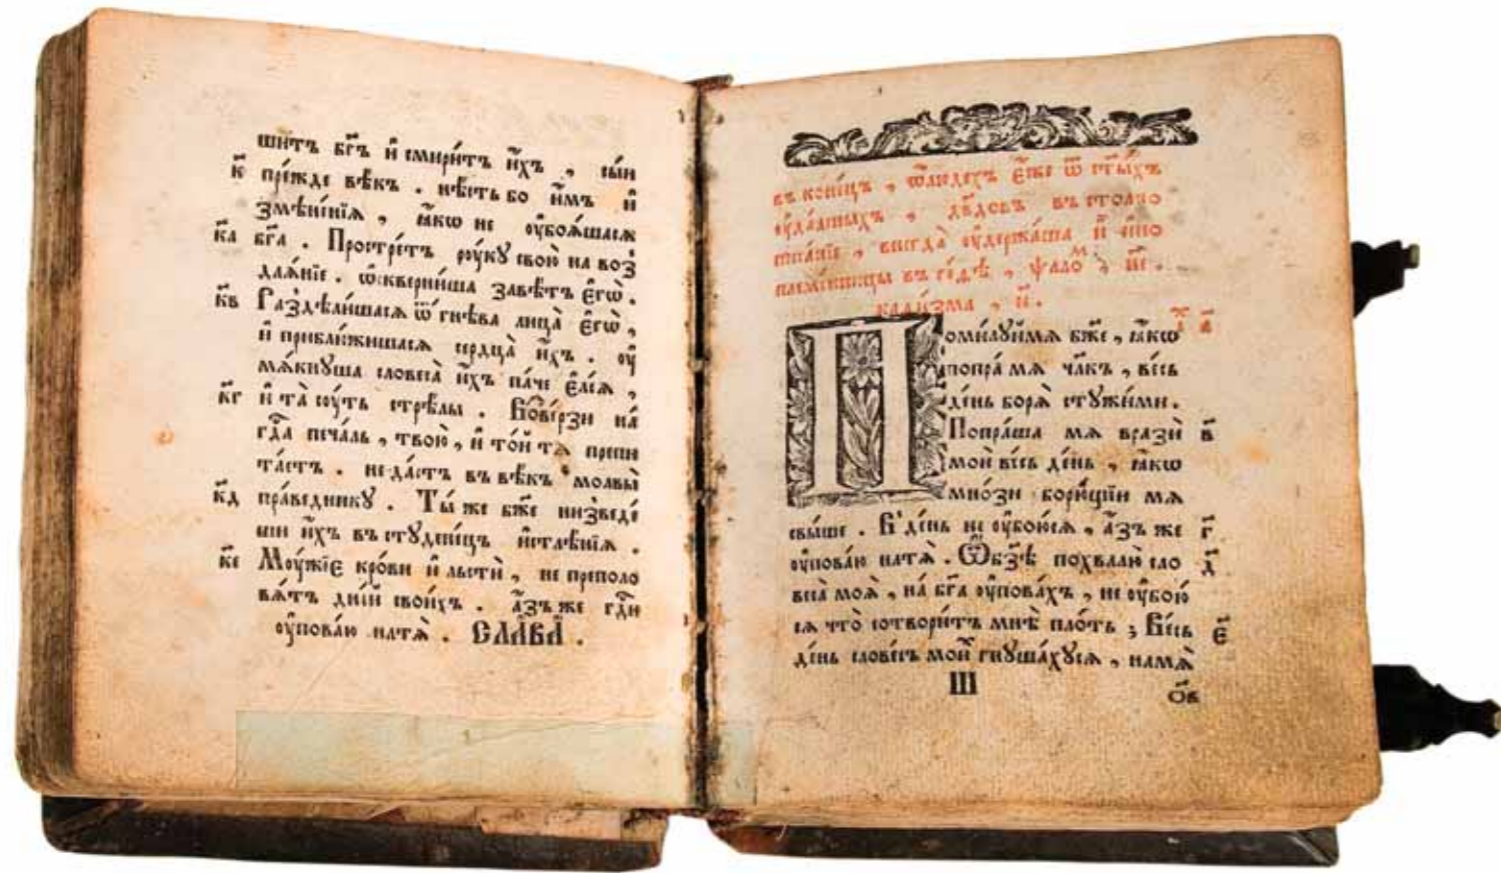 шитъ бг҃ъ и҆ смири́тъ и҆́хъ , сы́и
к҃ пре́жде вѣ́къ . нѣ́сть бо и҆̀мъ и҆
змѣне́нїѧ , ꙗ҆́кѡ не ѹ҆боѧ́шасѧ
к҃а бг҃а . Простре́тъ рѹ́кꙋ свою̀ на воз
даѧ́нїе . ѡ҆скверни́ша завѣ́тъ є҆гѡ̀ .
к҃в Раздѣли́шасѧ ѿ гнѣ́ва лица̀ є҆гѡ̀ ,
и҆ прибли́жишасѧ сердца̀ и҆́хъ . ѹ҆
мѧ́кнꙋша словеса̀ и҆́хъ па́че є҆ле́ѧ ,
к҃г и҆ та̀ сѹ́ть стрѣ́лы . Вове́рзи на́
гд҃а печа́ль , твою̀ , и҆ то́й тѧ̀ препи
та́етъ . не да́стъ въ вѣ́къ молвы̀
к҃д пра́веднику . Ты́ же бж҃е низведе́
ши и҆́хъ въ стꙋдене́цъ и҆стлѣ́нїѧ .
к҃е Мѹ́жїе кро́ви и҆ льстѝ , не преполо
вѧ́тъ дні́й свои́хъ . а҆́зъ же гд҃и
ѹ҆пова́ю на тѧ̀ . СЛА́ВА .
въ коне́цъ , ѡ҆ лю́дехъ є҆́же ѿ ст҃ы́хъ
ѹ҆да́лныхъ , дв҃дѹ въ столпо
писа́нїе , внегда̀ ѹ҆держа́ша и҆̀ и҆но
племе́нницы въ ге́ѳѣ , ѱало́м , н҃е .
каѳи́зма , и҃ .
Поми́лꙋй мѧ бж҃е , ꙗ҆́кѡ а҃
попра́ мѧ чл҃къ , ве́сь
де́нь борѧ̀ стꙋжи́ ми .
Попра́ша мѧ вразѝ в҃
моѝ ве́сь де́нь , ꙗ҆́кѡ
мно́зи борю́щїи мѧ
свы́ше . В' де́нь не ѹ҆бою́сѧ , а҆́зъ же г҃
ѹ҆пова́ю на тѧ̀ . Ѡ҆ бз҃ѣ похвалю̀ сло д҃
веса̀ моѧ̀ , на́ бг҃а ѹ҆пова́хъ , не ѹ҆бою́
сѧ что̀ сотвори́тъ мнѣ̀ пло́ть ; Ве́сь є҃
де́нь слове́съ мои́х гнꙋша́хꙋсѧ , на мѧ̀
Ш ѻ҃в